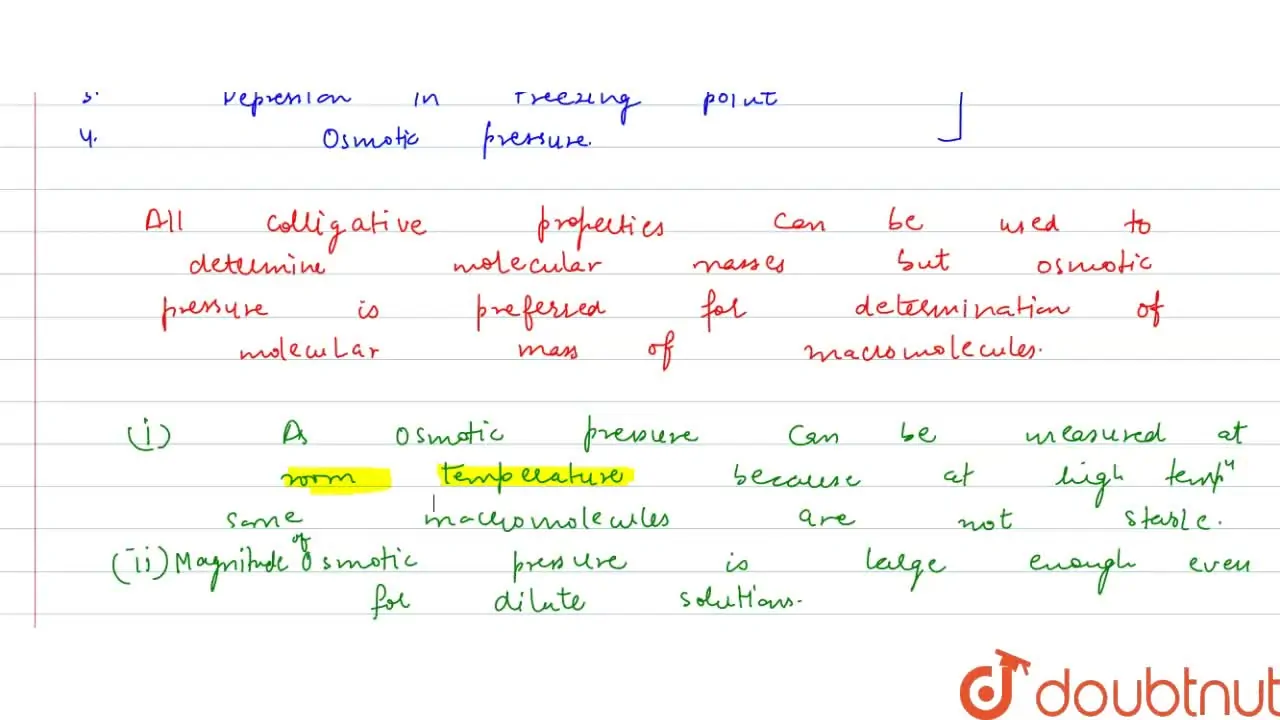 3. Depression in freezing point
4. Osmotic pressure.
All colligative properties can be used to
determine molecular masses but osmotic
pressure is preferred for determination of
molecular mass of macromolecules.
(i) As osmotic pressure can be measured at
room temperature because at high tempr
some macromolecules are not stable.
(ii) Magnitude of Osmotic pressure is large enough even
for dilute solutions.
doubtnut